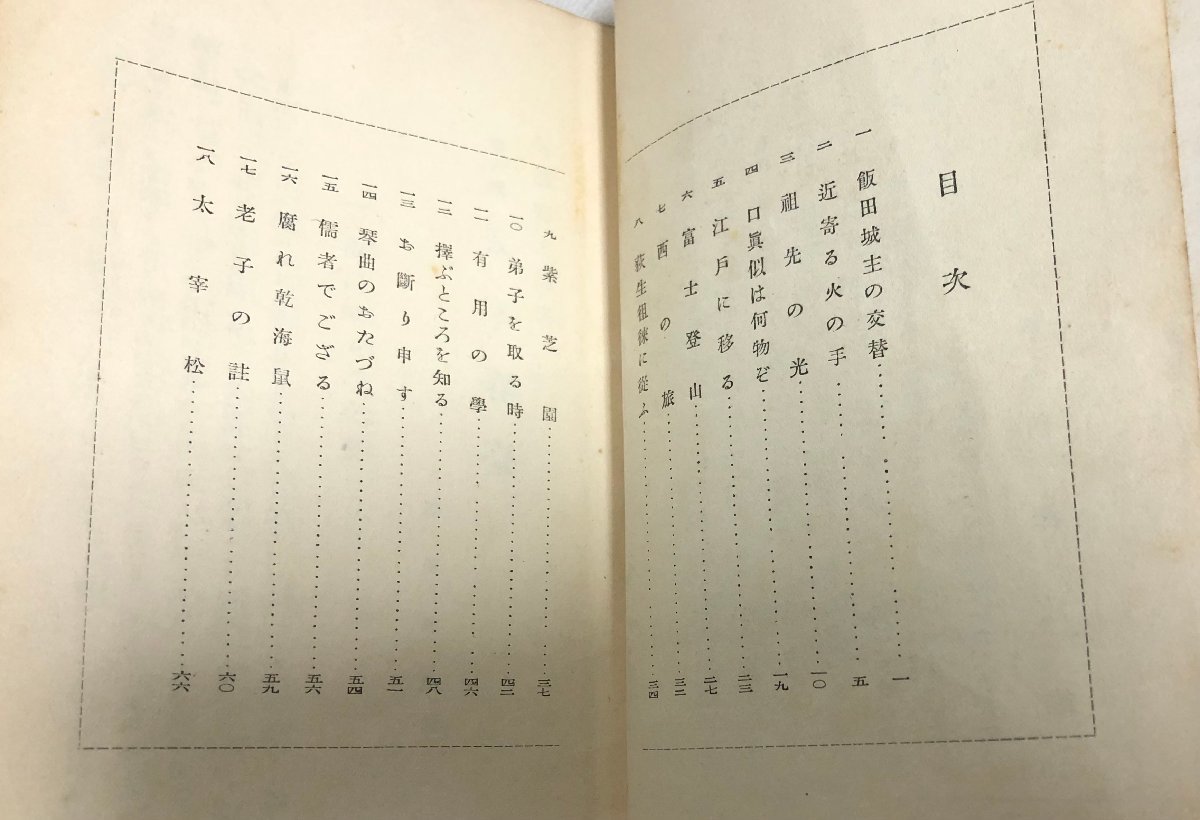 目次
一 飯田城主の交替 一
二 近寄る火の手 五
三 祖先の光 一〇
四 口眞似は何物ぞ 一九
五 江戸に移る 二三
六 富士登山 二七
七 西の旅 三二
八 荻生徂徠に從ふ 三四
九 紫芝園 三七
一〇 弟子を取る時 四二
一一 有用の學 四六
一二 擇ぶところを知る 四八
一三 お斷り申す 五一
一四 琴曲のおたづね 五四
一五 儒者でござる 五六
一六 腐れ乾海鼠 五九
一七 老子の註 六〇
一八 太宰松 六六